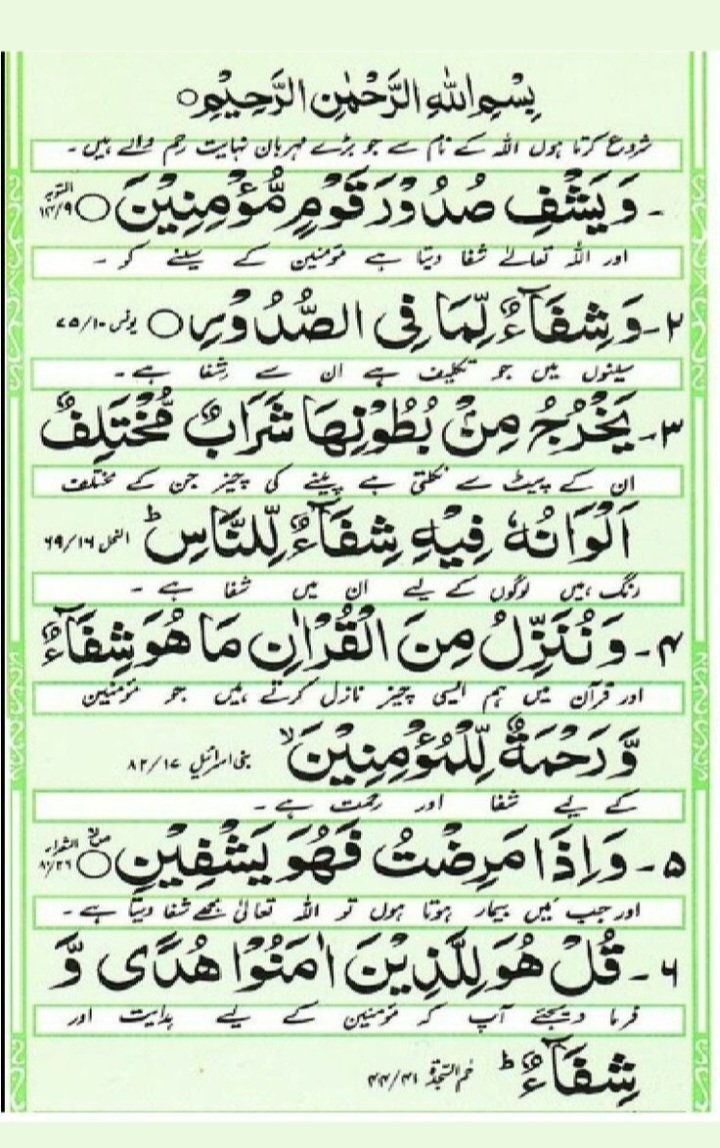 بِسْمِ اللهِ الرَّحْمٰنِ الرَّحِيْمِ ○
شروع کرتا ہوں اللہ کے نام سے جو بڑے مہربان نہایت رحم والے ہیں۔
۔ وَيَشْفِ صُدُوْرَ قَوْمٍ مُّؤْمِنِيْنَ ○ التوبہ ۱۴/۹
اور اللہ تعالےٰ شفا دیتا ہے مؤمنین کے سینے کو ۔
۲۔ وَشِفَآءٌ لِّمَا فِى الصُّدُوْرِ ○ یونس ۷۵/۱۰
سینوں میں جو تکلیف ہے ان سے شفا ہے۔
۳۔ يَخْرُجُ مِنْۢ بُطُوْنِهَا شَرَابٌ مُّخْتَلِفٌ
ان کے پیٹ سے نکلتی ہے پینے کی چیز جن کے مختلف
اَلْوَانُهٗ فِيْهِ شِفَآءٌ لِّلنَّاسِ ؕ النحل ۶۹/۱۶
رنگ ہیں لوگوں کے لیے ان میں شفا ہے ۔
۴۔ وَنُنَزِّلُ مِنَ الْقُرْاٰنِ مَا هُوَ شِفَآءٌ
اور قرآن میں ہم ایسی چیز نازل کرتے ہیں جو مؤمنین
وَّرَحْمَةٌ لِّلْمُؤْمِنِيْنَ ۙ بنی اسرائیل ۸۲/۱۷
کے لیے شفا اور رحمت ہے۔
۵۔ وَاِذَا مَرِضْتُ فَهُوَ يَشْفِيْنِ ○ الشعراء ۸۰/۲۶
اور جب میں بیمار ہوتا ہوں تو اللہ تعالیٰ مجھے شفا دیتا ہے۔
۶۔ قُلْ هُوَ لِلَّذِيْنَ اٰمَنُوْا هُدًى وَّ
فرما دیجئے آپ کہ مؤمنین کے لیے ہدایت اور
شِفَآءٌ ؕ حٰم السجدۃ ۴۴/۴۱